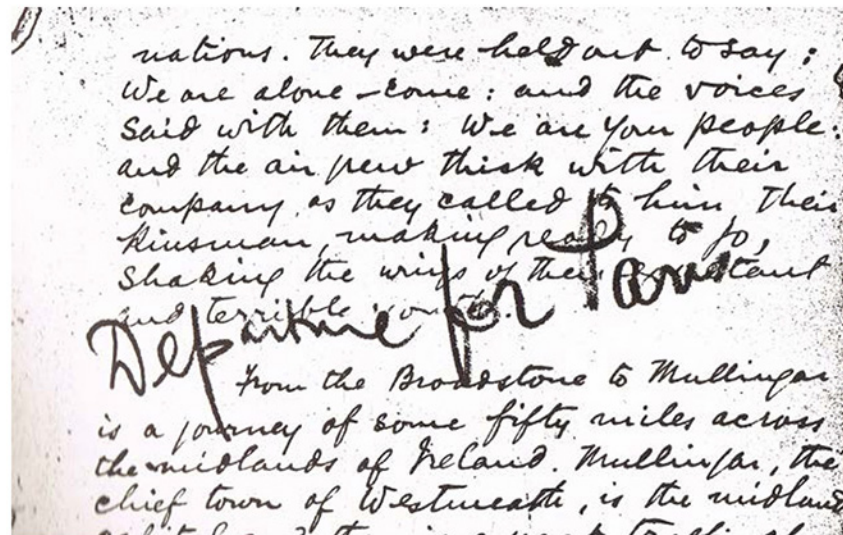 nations. They were held out to say:
We are alone – come: and the voices
said with them: We are your people.
and the air grew thick with their
company as they called to him their
kinsman, making ready to go,
shaking the wings of their exultant
and terrible youth.
Departure for Paris
From the Broadstone to Mullingar
is a journey of some fifty miles across
the midlands of Ireland. Mullingar, the
chief town of Westmeath, is the midland
capital and there is a great traffic of